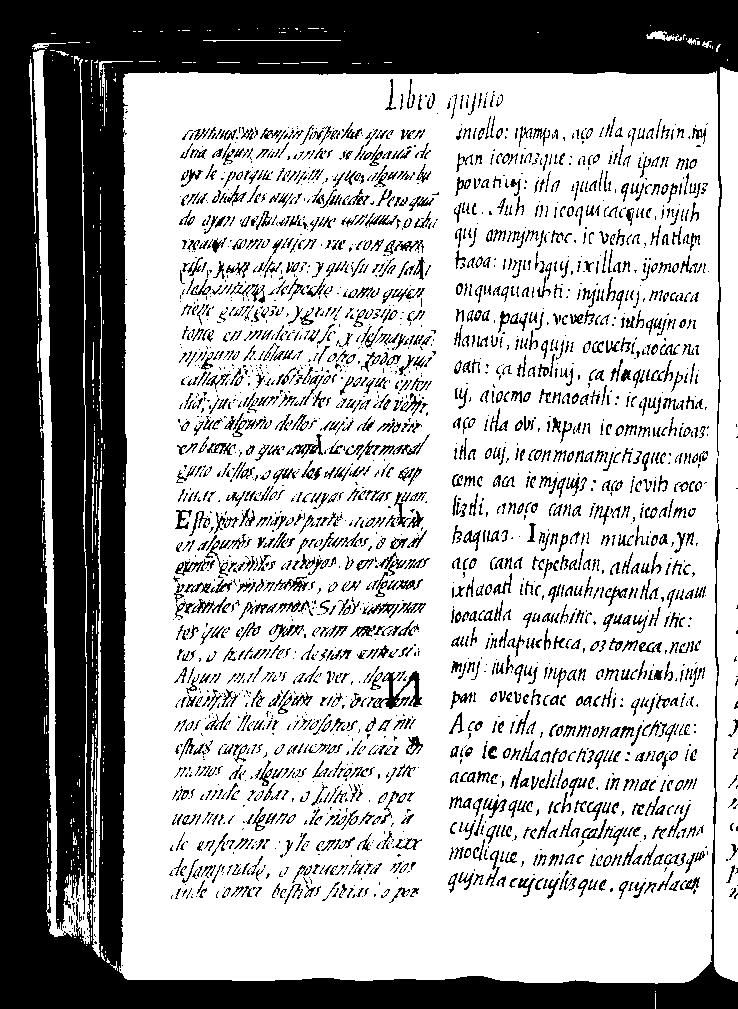 Libro quinto
cantaua, no tenian sospecha que ven
dria algun mal, antes se holgauā de
oyrle: porque tenian, que, alguna bu
ena dicha les auja de suceder. Pero quā
do oyan a esta aue, que cantaua, o cha
rreaua como quien rie, con gran
risa, y con alta voz: y que su risa salia
de lo intimo del pecho: como quien
tiene gran gozo, y gran regozijo: en
tonce, en mudecianse, y desmayauā:
ninguno hablaua, al otro, todos yuā
callando, y cabizbajos: porque enten
diā, que algun mal les auja de venjr,
o que alguno dellos auja de morir
en breue, o que auja de enfermar al
guno dellos, o que los aujan de cap
tiuar, aquellos a cuyas tierras yuan.
Esto, por la mayor parte acontecia,
en algunos valles profundos, o en al
gunos grandes arroyos, o en algunas
grandes montañas, o en algunos
grandes paramos. Si los caminan
tes que esto oyan, eran mercade
res, o tratantes: dezian entre si:
Algun mal nos ade ver, alguna
auenjda de algun rio, o creciente
nos ade lleuar a nosotros, o a nu
estras cargas, o auemos de caer en
manos de algunos ladrones, que
nos ande robar, o saltear: o por
uentura alguno de nosotros, a
de enfermar: y le emos de dexar
desamparado, o poruentura nos
ande comer bestias fieras: o por
iniollo: ipampa, aço itla qualtzin, ioj
pan iconiazque: aço itla ipan mo
povatiuj: itla qualli, qujcnopilujz
que. Auh in icoquicacque, injuh
quj ommjmjctoc. ie vetzca, tlatlatz
tzaoa: injuhquj, ixillan, ijomotlan
onquaquauhti: injuhquj, mocaca
naoa, paquj, vevetzca: iuhqujn on
tlanavi, iuhqujn ocevetzi, aocac na
oati: ça tlatoliuj, ça tlaquechpili
uj, aiocmo tenaoatili: ie qujmatia,
aço itla ovi, inpan ie ommuchioaz:
itla ouj, ie conmonamjctizque: anoço
ceme aca ie mjqujz: aço ie vitz coco
liztli, anoço cana inpan, icoalmo
tzaquaz. Injnpan muchioa, yn,
aço cana tepetzalan, atlauh itic,
ixtlaoatl itic, quauhnepantla, quauh
iooacatla quauhitic, quaujtl itic:
auh intlapuchteca, oztomeca, nene
mjnj: iuhquj inpan omuchiuh, injn
pan ovevetzcac oactli: qujtoaia.
Aço ie itla, commonamjctizque:
aço ie ontlaatoctizque: anoço ie
acame, tlaveliloque, in mac ie om
maqujzque, ichtecque, tetlacuj
cujlique, tetlatlaçaltique, tetlana
moelique, inmac ieontlatlaçazque
qujntlacujcujlizque, qujntlaçal